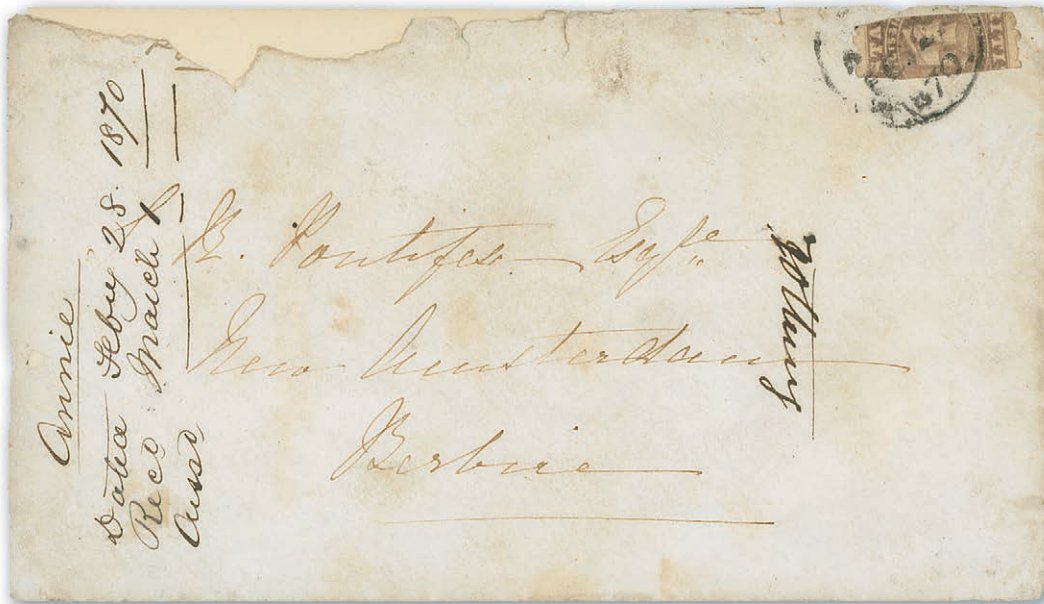 Annie
Dated Feby 28. 1870
Recd March 1
Ansd
R. Pontifex Esqre
New Amsterdam
Berbice
1870